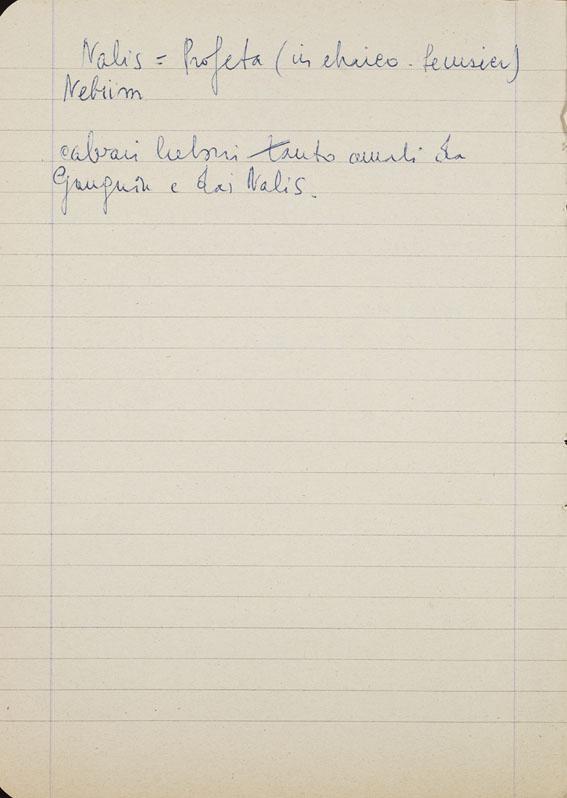 Nabis = Profeta (in ebraico.
Nebiim
calvari bretoni tanto amati da
Gauguin e dai Nabis.